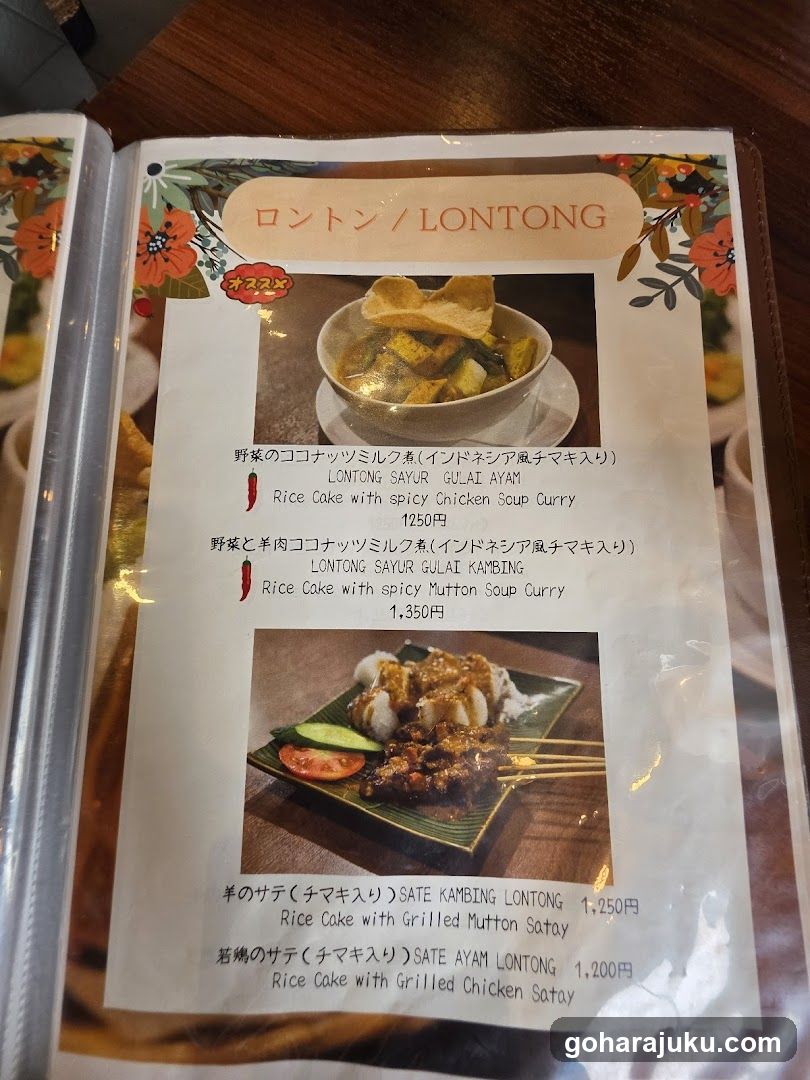 ロントン / LONTONG
オススメ
野菜のココナッツミルク煮(インドネシア風チマキ入り)
LONTONG SAYUR GULAI AYAM
Rice Cake with spicy Chicken Soup Curry
1250円
野菜と羊肉ココナッツミルク煮(インドネシア風チマキ入り)
LONTONG SAYUR GULAI KAMBING
Rice Cake with spicy Mutton Soup Curry
1,350円
羊のサテ(チマキ入り)SATE KAMBING LONTONG 1,250円
Rice Cake with Grilled Mutton Satay
若鶏のサテ(チマキ入り)SATE AYAM LONTONG 1,200円
Rice Cake with Grilled Chicken Satay
goharajuku.com